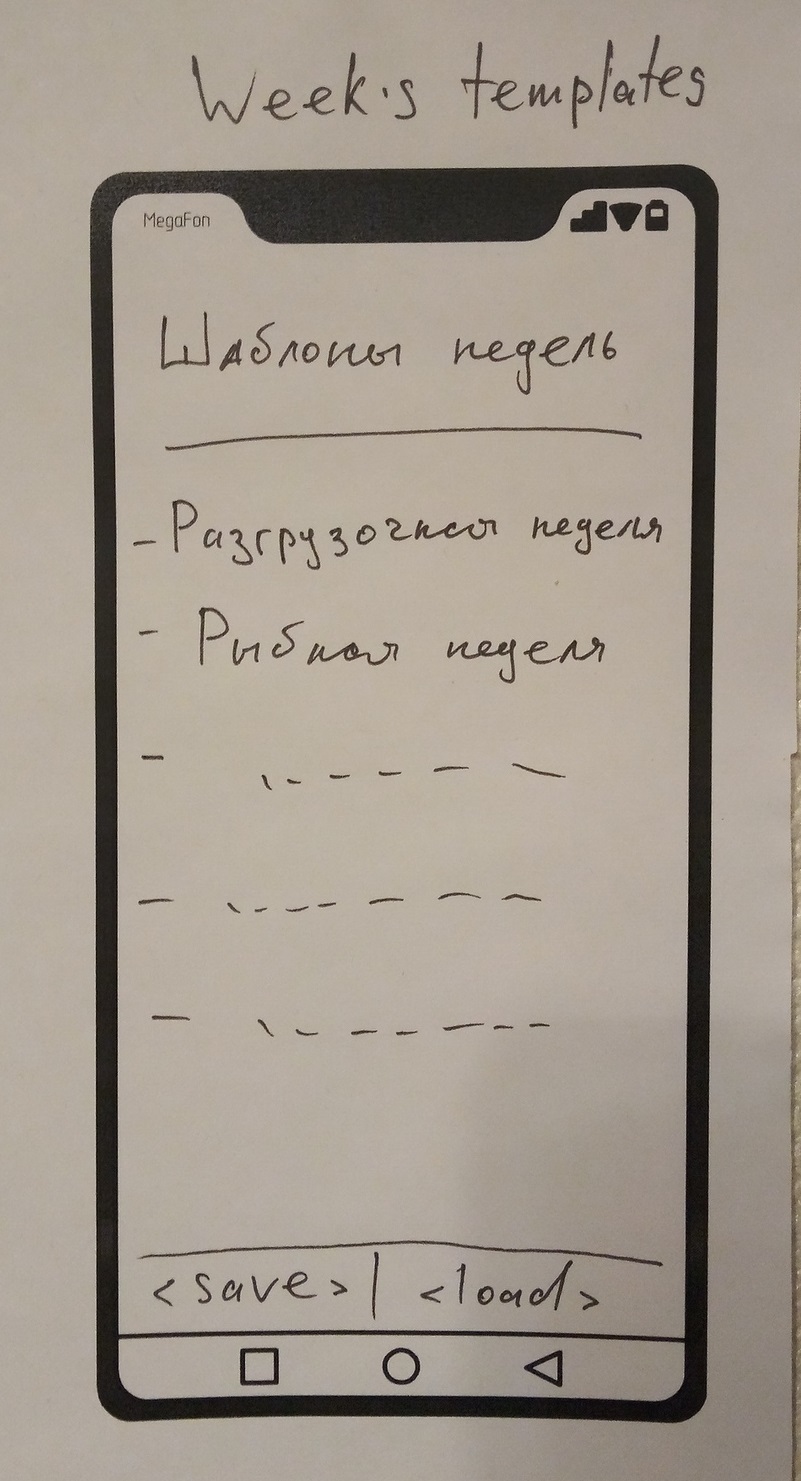 Week's templates
MegaFon
Шаблоны недель
- Разгрузочная неделя
- Рыбная неделя
<save> | <load>